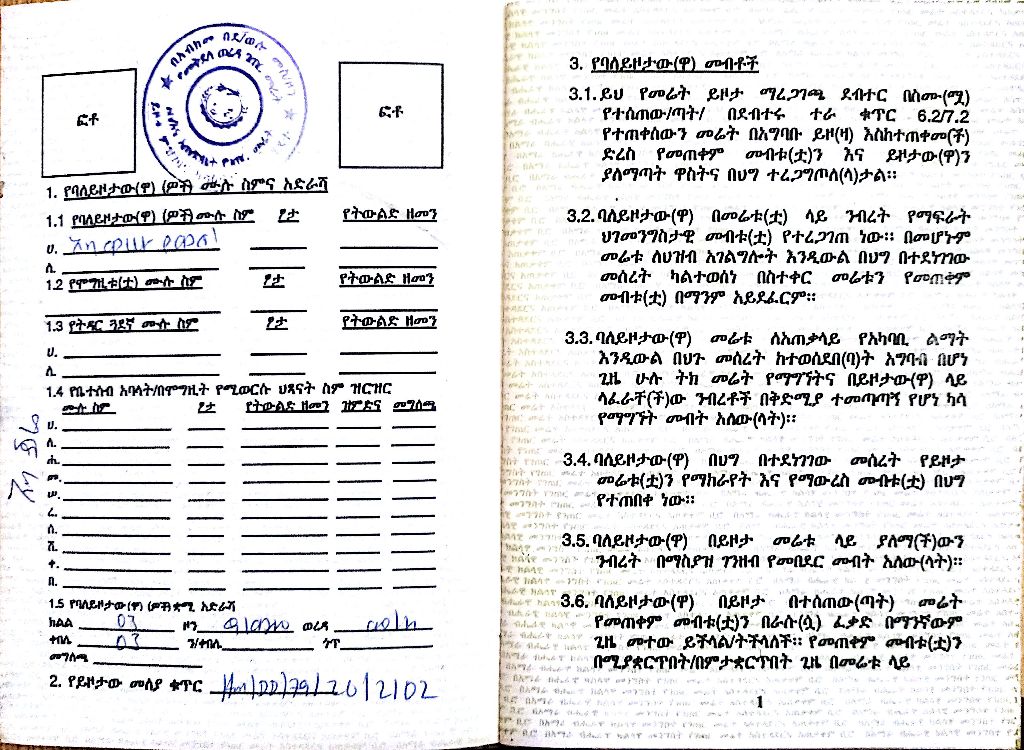 ፎቶ
ፎቶ
1. የባለይዞታው(ዋ) (ዎች) ሙሉ ስምና አድራሻ
1.1 የባለይዞታው(ዋ) (ዎች) ሙሉ ስም ፆታ የትውልድ ዘመን
ሀ.
ለ.
1.2 የሞግዚቱ(ቷ) ሙሉ ስም ፆታ የትውልድ ዘመን
1.3 የትዳር ጓደኛ ሙሉ ስም ፆታ የትውልድ ዘመን
ሀ.
ለ.
1.4 የቤተሰብ አባላት/በሞግዚት የሚወርሱ ህጻናት ስም ዝርዝር
ሙሉ ስም ፆታ የትውልድ ዘመን ዝምድና መግለጫ
ሀ.
ለ.
ሐ.
መ.
ሠ.
ረ.
ሰ.
ሸ.
ቀ.
በ.
1.5 የባለይዞታው(ዋ) (ዎች) ቋሚ አድራሻ
ክልል 03 ዞን ወረዳ
ቀበሌ 03 ን/ቀበሌ ጎጥ
መግለጫ
2. የይዞታው መለያ ቁጥር
3. የባለይዞታው(ዋ) መብቶች
3.1. ይህ የመሬት ይዞታ ማረጋገጫ ደብተር በስሙ(ሟ)
የተሰጠው/ጣት/ በደብተሩ ተራ ቁጥር 6.2/7.2
የተጠቀሰውን መሬት በአግባቡ ይዞ(ዛ) እስከተጠቀመ(ች)
ድረስ የመጠቀም መብቱ(ቷ)ን እና ይዞታው(ዋ)ን
ያለማጣት ዋስትና በህግ ተረጋግጦለ(ላ)ታል።
3.2. ባለይዞታው(ዋ) በመሬቱ(ቷ) ላይ ንብረት የማፍራት
ህገመንግስታዊ መብቱ(ቷ) የተረጋገጠ ነው። በመሆኑም
መሬቱ ለህዝብ አገልግሎት እንዲውል በህግ በተደነገገው
መሰረት ካልተወሰነ በስተቀር መሬቱን የመጠቀም
መብቱ(ቷ) በማንም አይደፈርም።
3.3. ባለይዞታው(ዋ) መሬቱ ለአጠቃላይ የአካባቢ ልማት
እንዲውል በህጉ መሰረት ከተወሰደበ(ባ)ት አግባብ በሆነ
ጊዜ ሁሉ ትክ መሬት የማግኘትና በይዞታው(ዋ) ላይ
ላፈራቸ(ች)ው ንብረቶች በቅድሚያ ተመጣጣኝ የሆነ ካሳ
የማግኘት መብት አለው(ላት)።
3.4. ባለይዞታው(ዋ) በህግ በተደነገገው መሰረት የይዞታ
መሬቱ(ቷ)ን የማከራየት እና የማውረስ መብቱ(ቷ) በህግ
የተጠበቀ ነው።
3.5. ባለይዞታው(ዋ) በይዞታ መሬቱ ላይ ያለማ(ች)ውን
ንብረት በማስያዝ ገንዘብ የመበደር መብት አለው(ላት)።
3.6. ባለይዞታው(ዋ) በይዞታ በተሰጠው(ጣት) መሬት
የመጠቀም መብቱ(ቷ)ን በራሱ(ሷ) ፈቃድ በማንኛውም
ጊዜ መተው ይችላል/ትችላለች። የመጠቀም መብቱ(ቷ)ን
በሚያቋርጥበት/በምታቋርጥበት ጊዜ በመሬቱ ላይ
1